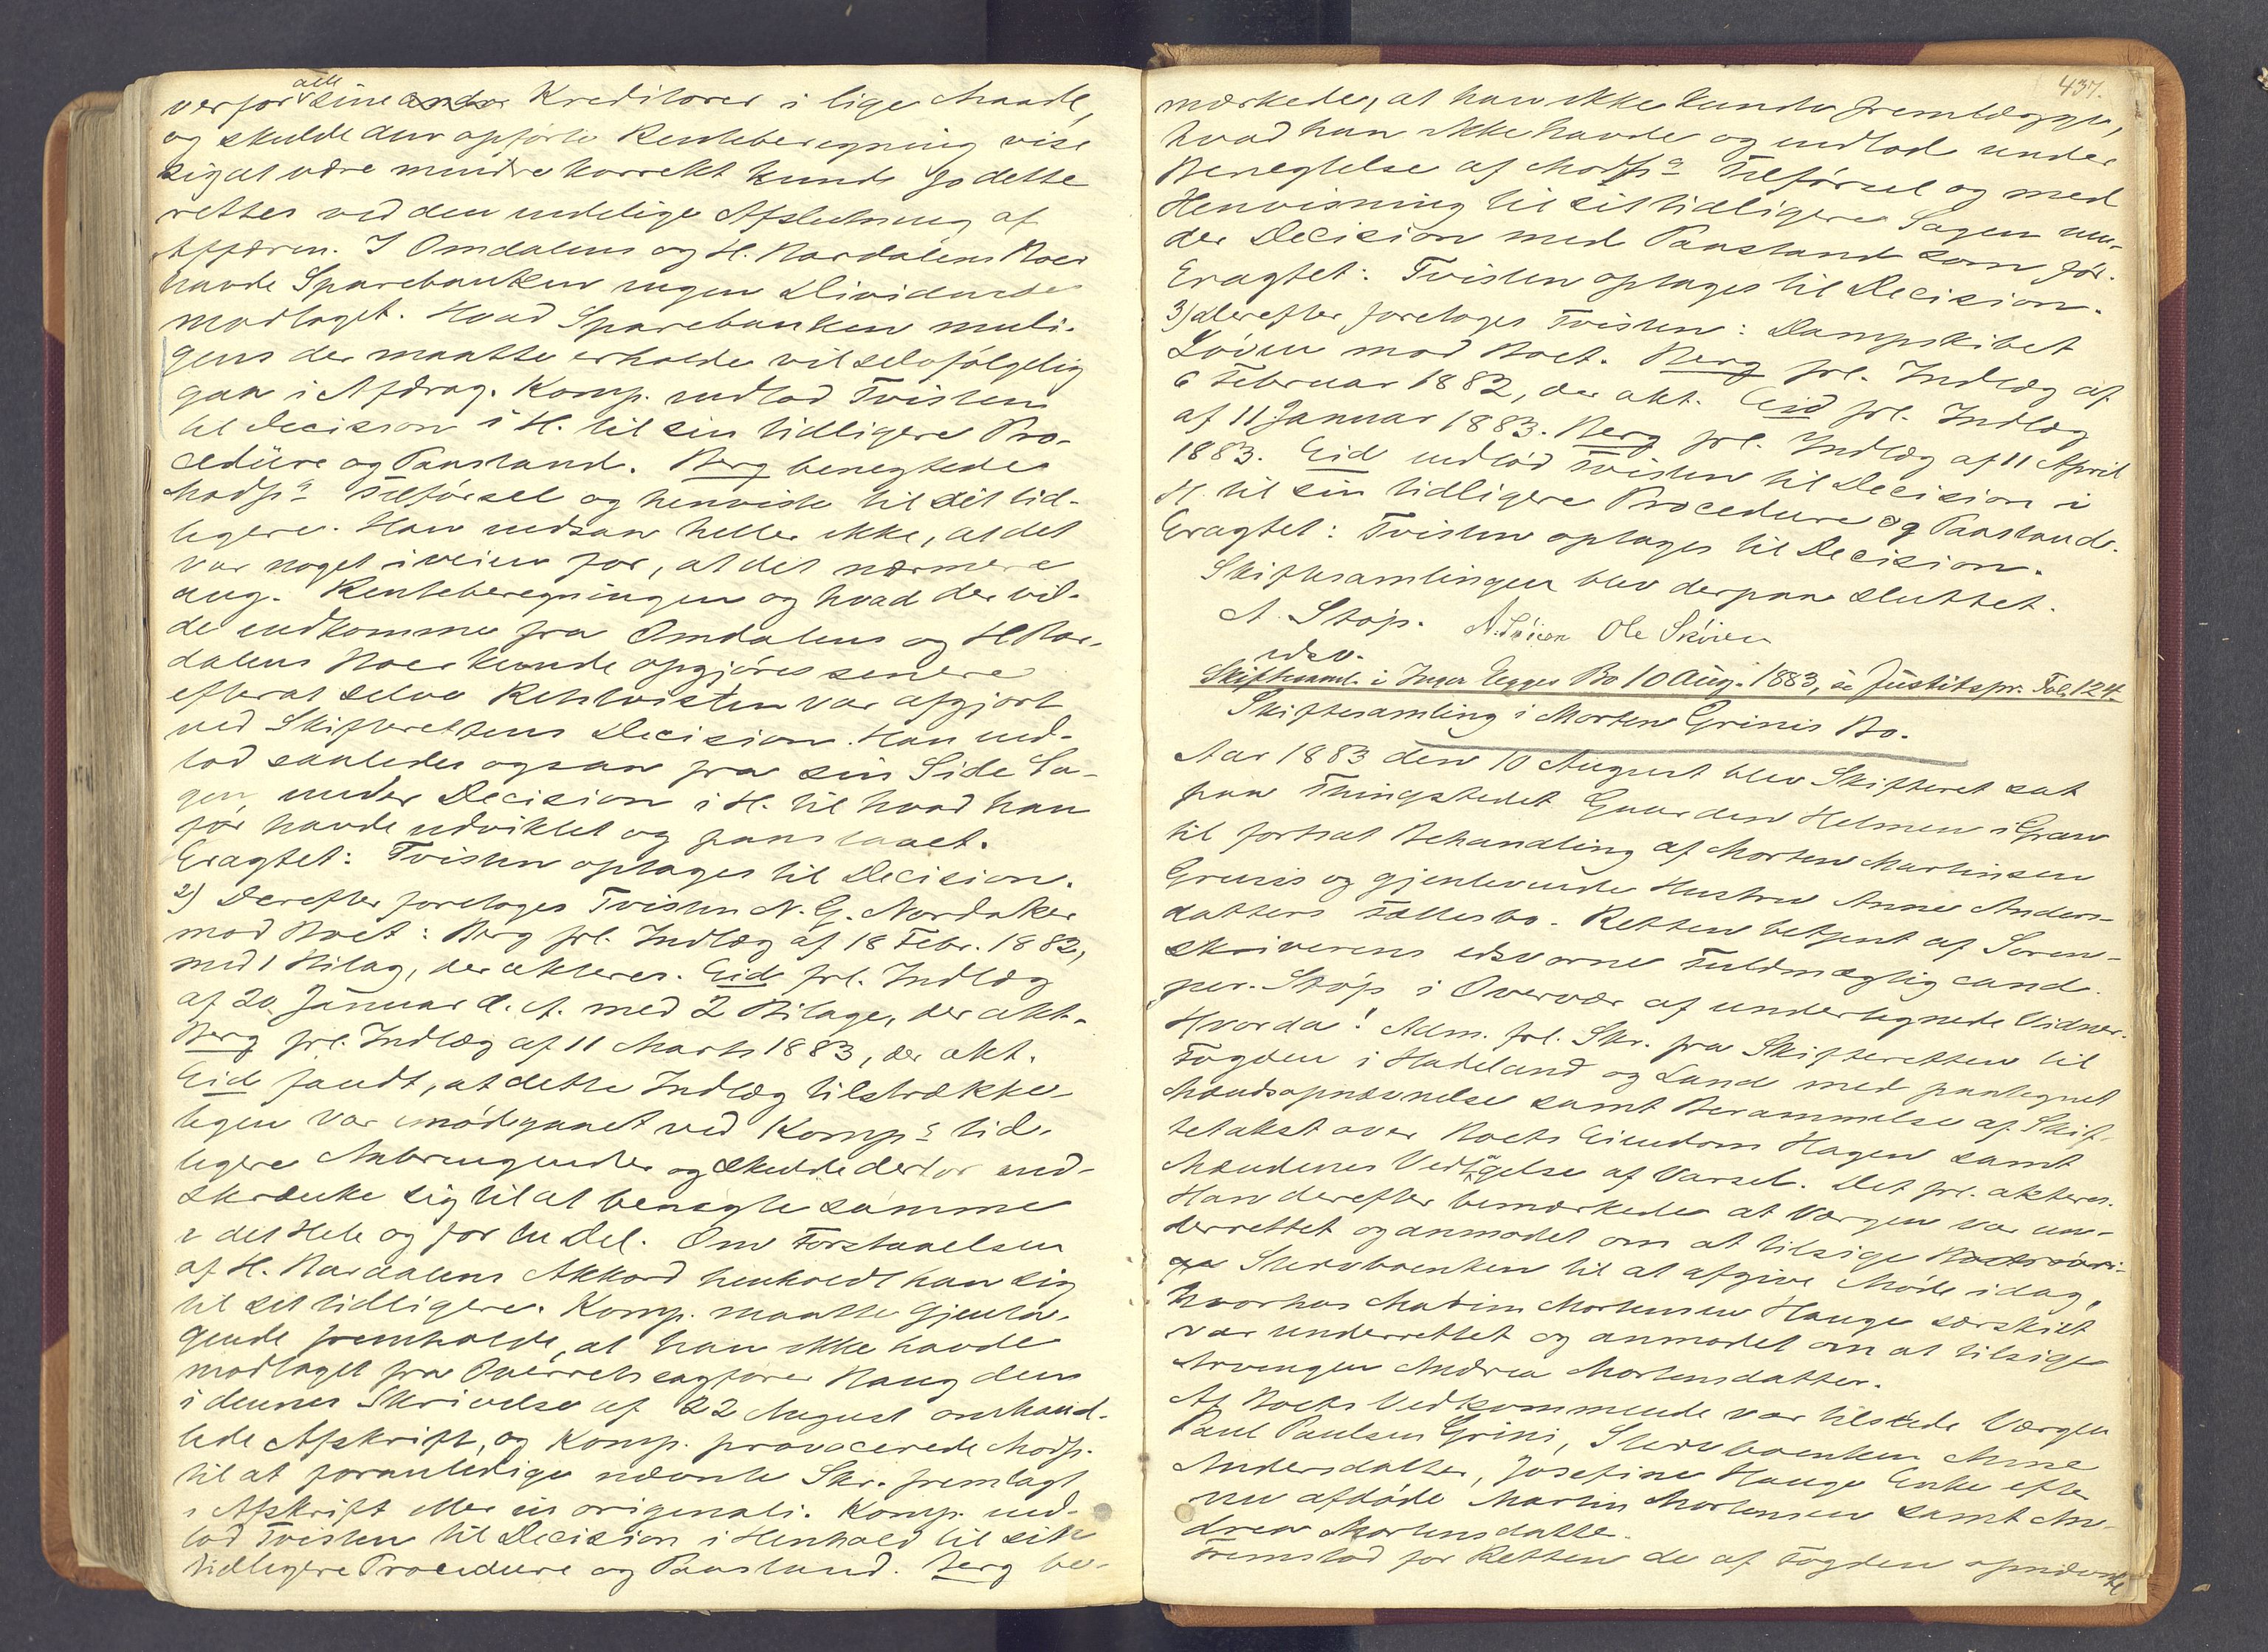 verfor alle sine andre Kreditorer i lige Maade,
og skulde den opførte Renteberegning vise
sig at være mindre korrekt kunde jo dette
rettes ved den endelige Afslutning af
Affæren. I Omdalens og H. Nardalens Boer
havde Sparebanken ingen Dividende
modtaget. Hvad Sparebanken muli-
gens der maatte erholde vil selvfølgelig
gaa i Afdrag. Komp. indlod Tvisten
til Decision i H. til sin tidligere Pro-
cedüre og Paastand. Berg benegtede
Modps Tilførsel og henviste til sit tid-
ligere. Han indsaa heller ikke, at det
var noget iveien for, at det nærmere
ang. Renteberegningen og hvad der vil-
de indkomme fra Omdalens og H Nar-
dalens Boer kunde opgjøres senere
efterat selve Retstvisten var afgjort
ved Skifterettens Decision. Han ind-
lod saaledes ogsaa fra sin Side Sa-
gen under Decision i H. til hvad han
før havde udviklet og paastaaet.
Eragtet: Tvisten optages til Decision.
2) Derefter foretoges Tvisten N. G. Nordaker
mod Boet: Berg frl. Indlæg af 18 Febr. 1882,
med 1 Bilag, der akteres. Eid frl. Indlæg
af 20 Januar d. A. med 2 Bilage, der akt.
Berg frl. Indlæg af 11 Marts 1883, der akt.
Eid fandt, at dette Indlæg tilstrække-
ligen var imødegaaet ved Komps tid-
ligere Anbringender og skulde derfor ind-
skrænke sig til at benegte samme
i det Hele og for en Del. Om Forstaaelsen
af H. Nardalens Akkord henholdt han sig
til sit tidligere. Komp. maatte gjenta-
gende fremholde, at han ikke havde
modtaget fra Overretssagfører Haug den
i dennes Skrivelse af 22 August omhand-
lede Afskrift, og Komp. provocerede Modp.
til at foranledige nævnte Skr. fremlagt
i Afskrift eller in originali. Komp. ind-
lod Tvisten til Decision i Henhold til sit
tidligere Procedure og Paastand. Berg be-
437.
mærkede, at han ikke kunde fremlægge,
hvad han ikke havde og indlod under
Benegtelse af Modps Tilførsel og med
Henvisning til sit tidligere Sagen un-
der Decision med Paastand som før.
Eragtet: Tvisten optages til Decision.
3) Derefter foretoges Tvisten: Dampskibet
Løven mod Boet. Berg frl. Indlæg af
6 Februar 1882, der akt. Eid frl. Indlæg
af 11 Januar 1883. Berg frl. Indlæg af 11 April
1883. Eid indlod Tvisten til Decision i
H. til sin tidligere Procedure og Paastand.
Eragtet: Tvisten optages til Decision.
Skiftesamlingen blev derpaa sluttet.
A. Støp. Ole Skøien
edsv.
Skiftesaml. i Inger Egges Bo 10 Aug. 1883, se Justitspr. Fol. 124.
Skiftesamling i Morten Grinis Bo.
Aar 1883 den 10 August blev Skifteret sat
paa Thingstedet Gaarden Helmen i Gran
til fortsat Behandling af Morten Martinsen
Grinis og gjenlevende Hustru Anne Anders-
datters Fællesbo. Retten betjent af Soren-
skriverens edsvorne Fuldmægtig cand.
jur. Støp i Overvær af undertegnede Vidner.
Hvorda! Adm. frl. Skr. fra Skifteretten til
Fogden i Hadeland og Land med paategnet
Mændsopnævnelse samt Berammelse af Skif-
tetakst over Boets Eiendom Hagen samt
Mændenes Vedtagelse af Varsel. Det frl. akteres.
Han derefter bemærkede at Værgen var un-
derrettet og anmodet om at tilsige
Stervboenken til at afgive Møde idag,
hvorhos Madim Mortensen Hauge særskilt
var underrettet og anmodet om at tilsige
Arvingen Andrea Mortensdatter.
Af Boets Vedkommende var tilstede Værgen
Paul Paulsen Grini, Stervboenken Anne
Andersdatter, Josefine Hauge Enke efter
nu afdøde Martin Mortensen samt An-
drea Mortensdatter.
Fremstod for Retten de af Fogden opnævnte